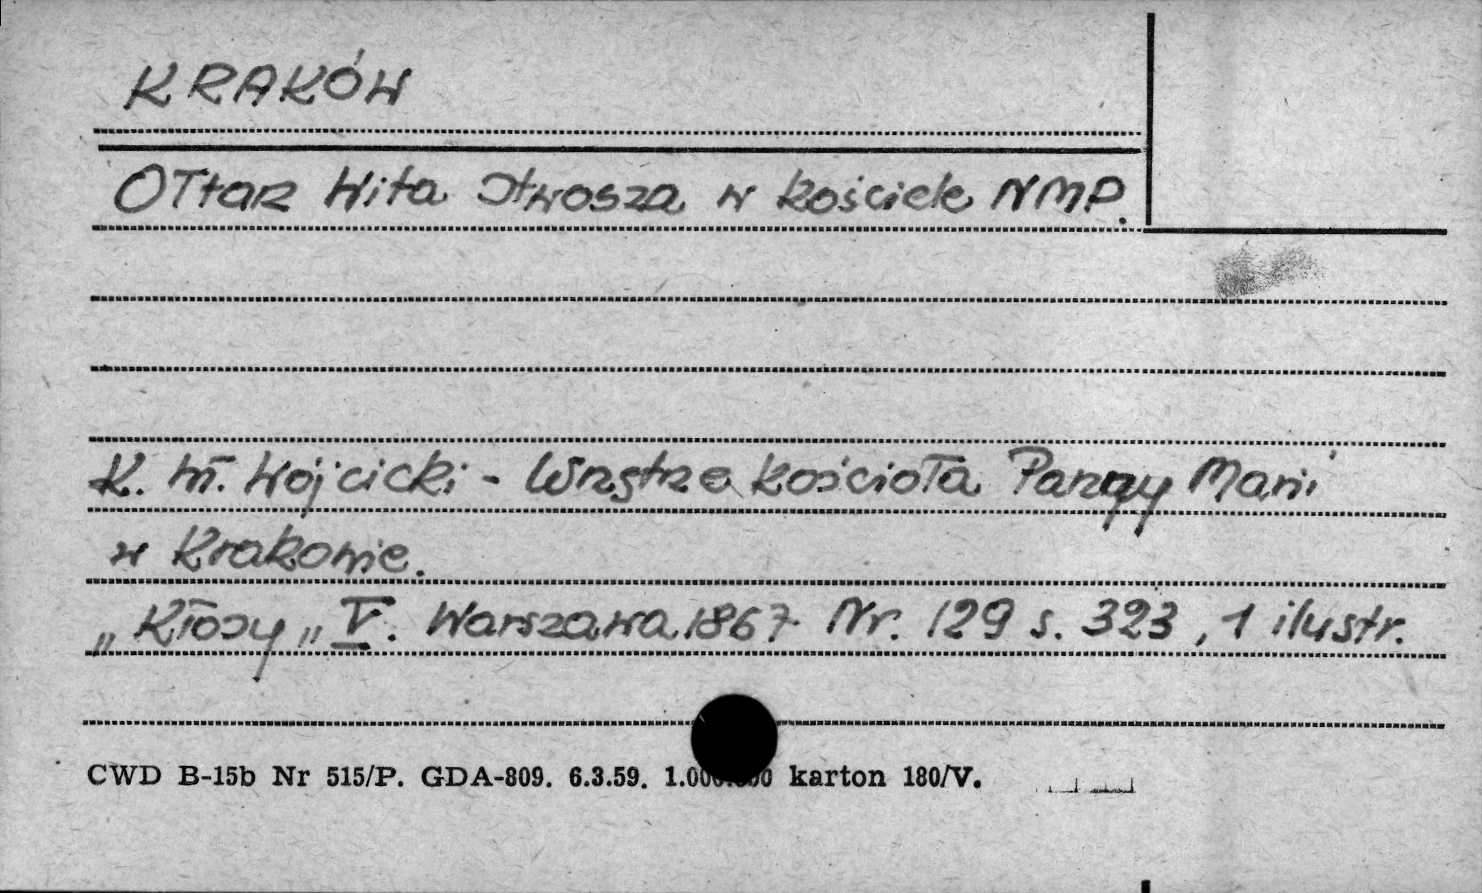 KRAKÓW
Ołtarz Wita Stwosza w kościele NMP.
K. Wł. Wójcicki - Wnętrze kościoła Panny Marii
w Krakowie.
„Kłosy„ V. Warszawa 1867 Nr. 129 s. 323, 1 ilustr.
CWD B-15b Nr 515/P. GDA-809. 6.3.59. 1.000.000 karton 180/V.